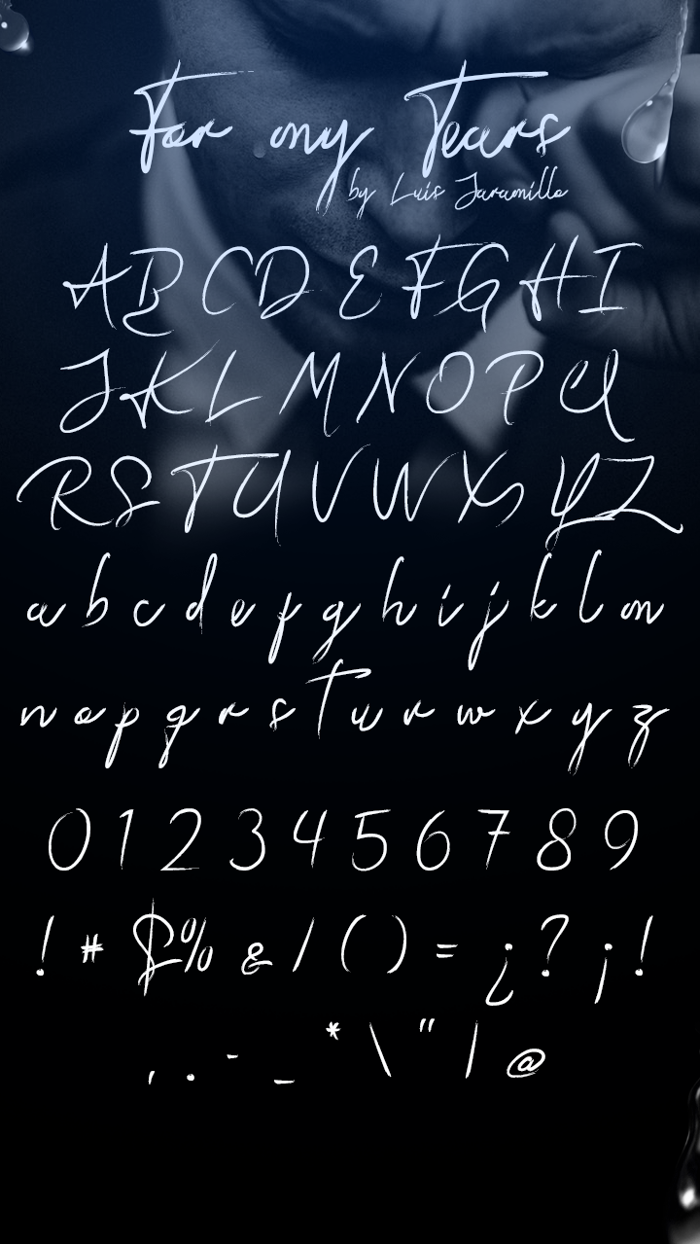 For my Tears
by Luis Jaramillo
A B C D E F G H I
J K L M N O P Q
R S T U V W X Y Z
a b c d e f g h i j k l m
n o p q r s t u v w x y z
0 1 2 3 4 5 6 7 8 9
! # $ % & / ( ) = ¿ ? ¡ !
, . - _ * \ " | @